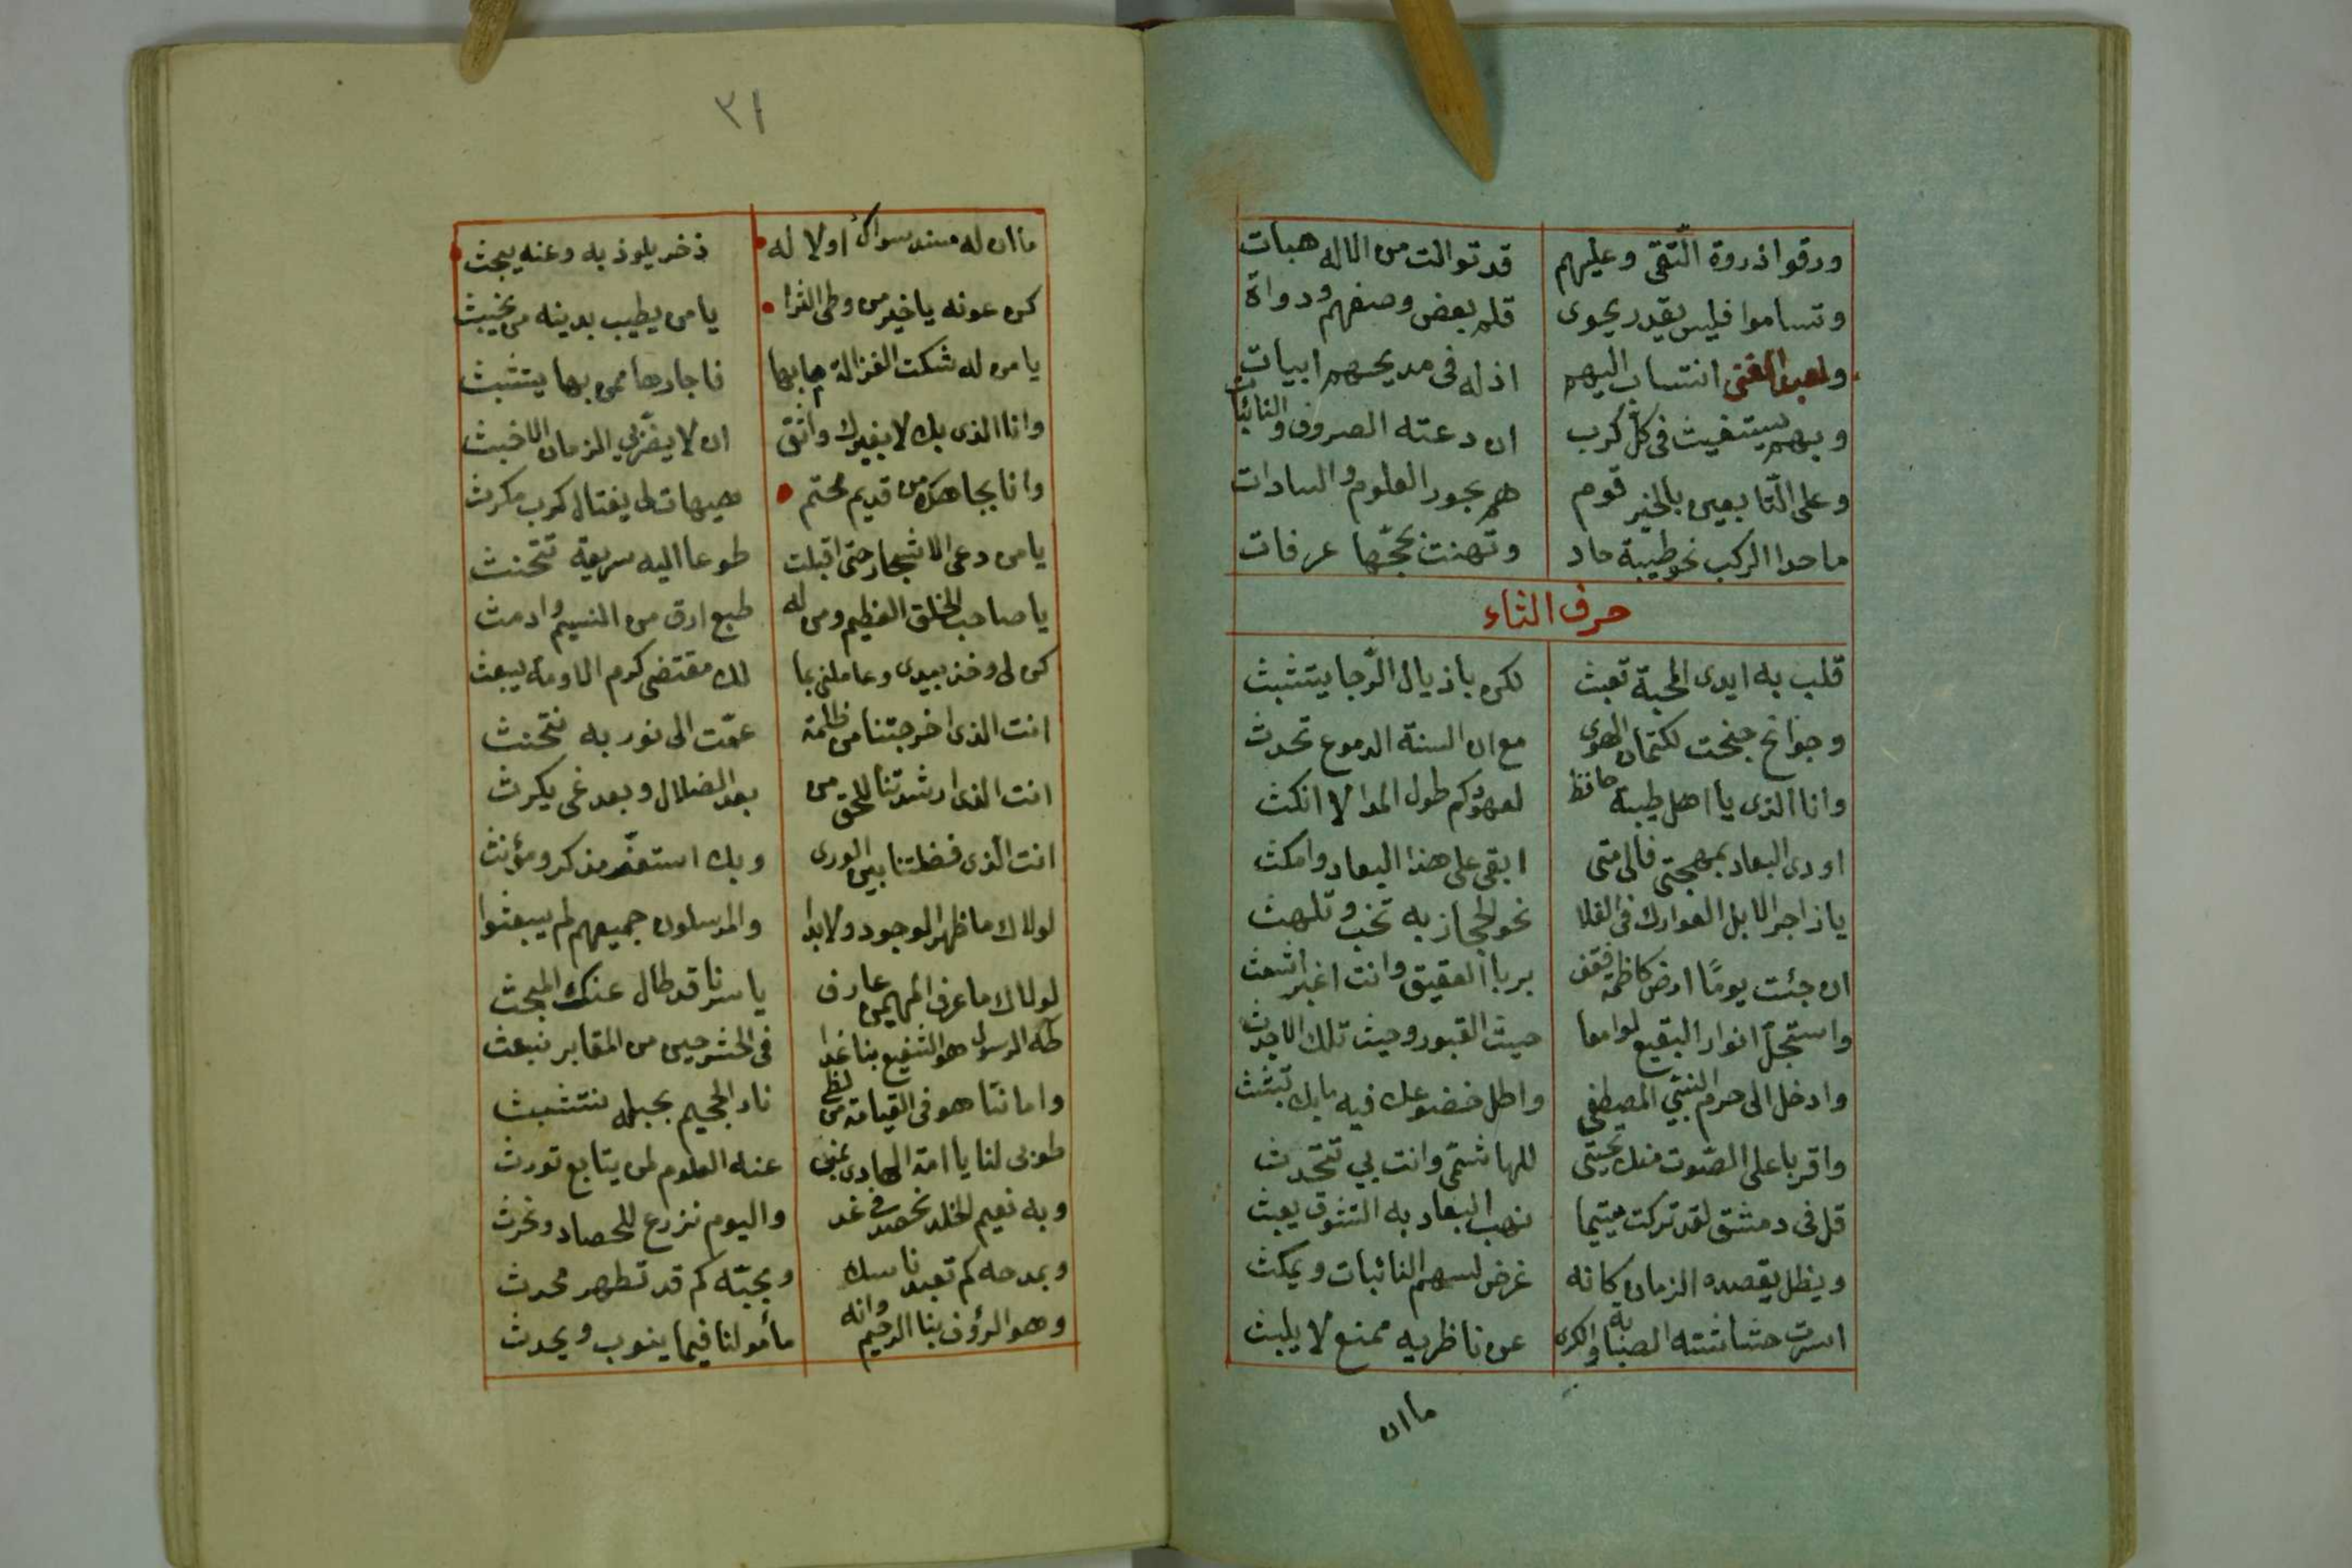 ورقوا ذروة التّقى وعليهم قد توالت من الاله هبات
وتساموا فليس يقدر يحوى قلم بعض وصفهم ودواة
ولعبد الغنى انتساب اليهم اذ له فى مديحهم ابيات
وبهم يستغيث فى كلّ كرب ان دعته الصروف والنائبات
وعلى التّابعين بالخير قوم هم بحور العلوم والسادات
ما حدا الركب نحو طيبة حاد وتهنت بحجّها عرفات
حرف الثاء
قلب به ايدى المحبة تعبث لكن باذيال الرّجا يتشبث
وجوانح جنحت لكتمان الهوى مع ان السنة الدموع تحدث
وانا الذى يا اهل طيبة حافظ لعهودكم طول المدا لا انكث
اودى البعاد بمهجتى فالى متى ابقى على هذا البعاد وامكث
يا زاجر الابل العوارك فى الفلا نحو الحجاز به تخب وتلهث
ان جئت يومًا ارض كاظمة فقف بربا العقيق وانت اغبر اشعث
واستجل انوار البقيع لوامعا حيث القبور وحيث تلك الاجدث
وادخل الى حرم النبّي المصطفى واطل خضوعك فيه ما بك تبثث
واقربا على الصّوت منك تحيتى للهاشمى وانت بي تتحدث
قل فى دمشق لقد تركت متيما نهب البعاد به التشوق يعبث
ويظل يقصده الزمان كانه غرض لسهم النائبات ويمكث
اسرت حشاشته الصبابة والكرى عن ناظريه ممنع لا يلبث
ما ان
٣١
ما ان له سند سواك أولا له ذخر يلوذ به وعنه يبحث
كن عونه يا خير من وطى الثرا يا من يطيب بدينه من يخبث
يا من له شكت الغزالة ما بها فاجارها ممن بها يتشبث
وانا الذى بك لا بغيرك واثق ان لا يضرّني الزمان الاخبث
وانا بجاهك من قديم محتم هيهات لى يغتال كرب مكرث
يا من دعى الاشجار حتى اقبلت طوعا اليه سريعة تتحنث
يا صاحب الخلق العظيم ومن له طبع ارق من النسيم وادمث
كن لى وخذ بيدى وعاملنى بما لك مقتضى كرم الاومة يبعث
انت الذى اخرجتنا من ظلمة عمّت الى نور به نتحنث
انت الذى ارشدتنا للحق من بعد الضلال وبعد غى يكرث
انت الذى فضلتنا بين الورى وبك استعز مذكر ومؤنث
لولاك ما ظهر الوجود ولا بدا والمرسلون جميعهم لم يبعثوا
لولاك ما عرف المهيمن عارف يا سرنا قد طال عنك المبحث
طه الرسول هو الشفيع بنا غدا فى الحشر حين من المقابر نبعث
واماننا هو فى القيامة من لظى نار الجحيم بحبله نتشبث
طوبى لنا يا امة الهادى بمن عنه العلوم لمن يتابع تورث
وبه نعيم الخلد نحصد فى غد واليوم نزرع للحصاد ونحرث
وبمدحه كم تعبد ناسك وبحبّه كم قد تطهر محدث
وهو الرؤف بنا الرحيم وانه مأمولنا فيما ينوب ويحدث